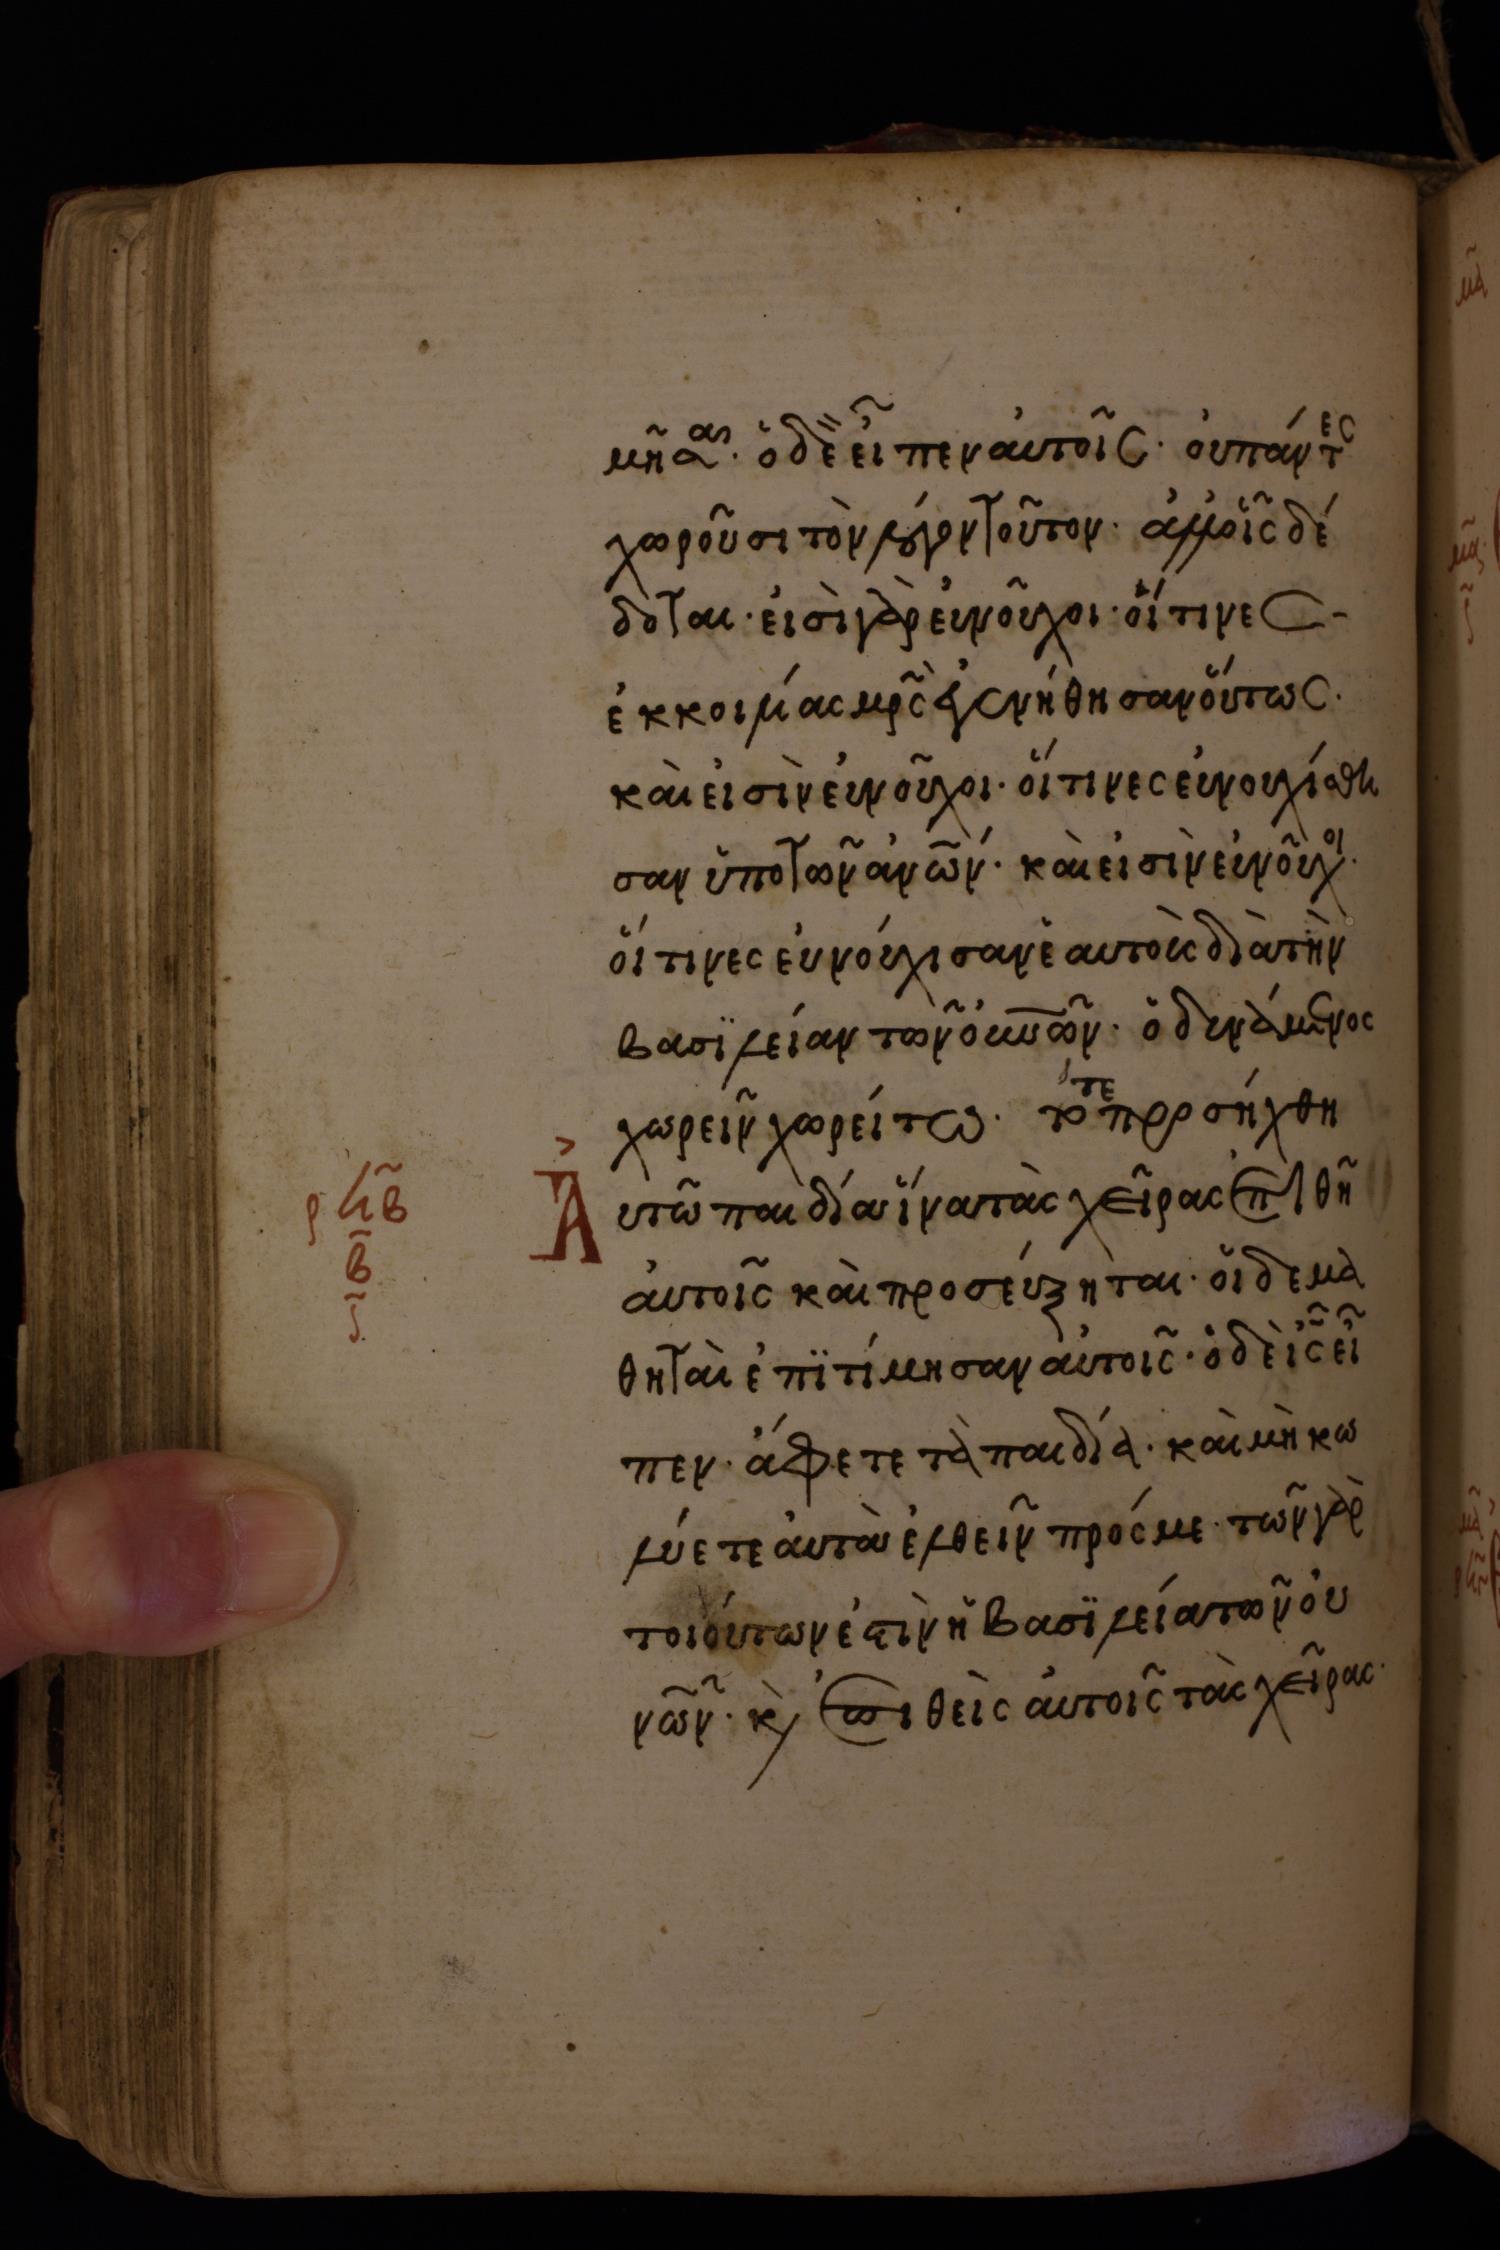 μῆσαι. ὁ δὲ εἶπεν αὐτοῖς. οὐ πάντες
χωροῦσι τὸν λόγον τοῦτον. ἀλλ οἷς δέ
δοται. εἰσὶ γὰρ εὐνοῦχοι. οἵτινες
ἐκ κοιλίας μρ̅ς ἐγεννήθησαν οὕτως.
καὶ εἰσὶν εὐνοῦχοι. οἵτινες εὐνουχίσθη
σαν ὑπὸ τῶν ἀν̅ων. καὶ εἰσὶν εὐνοῦχοι.
οἵτινες εὐνούχισαν ἑαυτοὺς διὰ τὴν
βασϊλείαν τῶν οὐν̅ων. ὁ δυνάμενος
χωρεῖν χωρείτω. τότε προσήχθη
Αὐτῶ παιδία ἵνα τὰς χεῖρας ἐπιθῆ
ρϟβ
β
ϛ
αὐτοῖς καὶ προσεύξηται. οἱ δὲ μα
θηταὶ ἐπϊτίμησαν αὐτοῖς. ὁ δὲ ι̅ς εἶ
πεν. ἄφετε τὰ παιδία. καὶ μὴ κω
λύετε αὐτὰ ἐλθεῖν πρός με. τῶν γὰρ
τοιούτων ἐστὶν ἡ βασϊλεία τῶν οὐ
νῶν. καὶ ἐπιθεὶς αὐτοῖς τὰς χεῖρας.